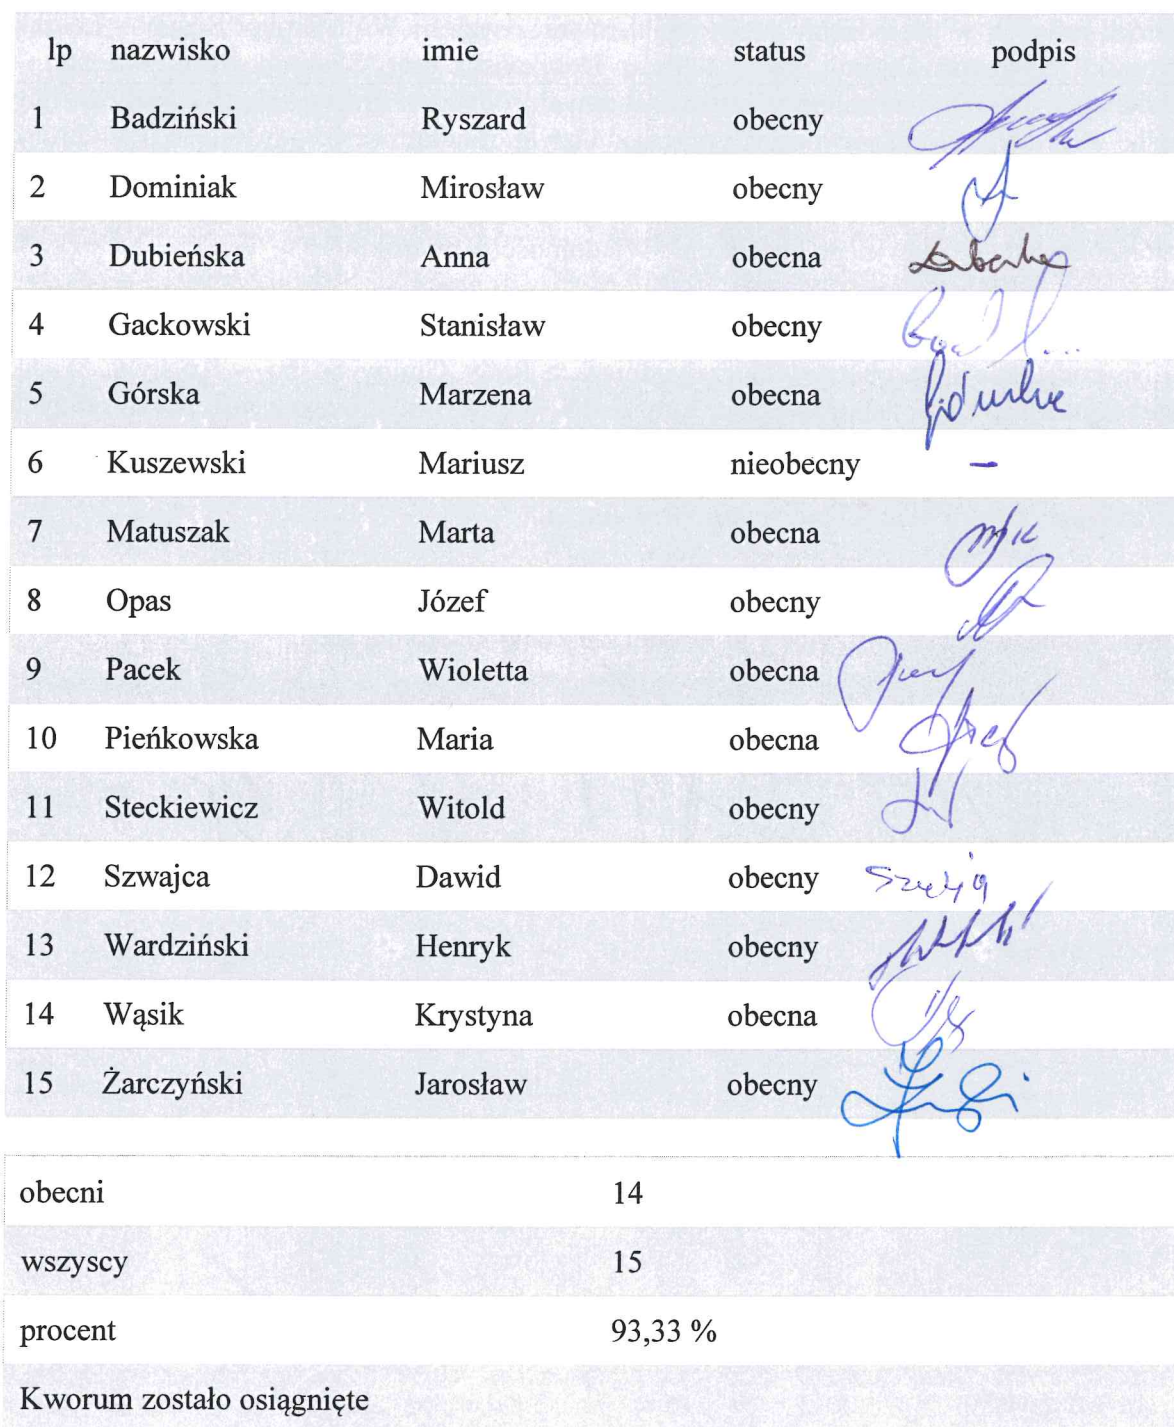 lp nazwisko imie status podpis
1 Badziński Ryszard obecny
2 Dominiak Mirosław obecny
3 Dubieńska Anna obecna
4 Gackowski Stanisław obecny
5 Górska Marzena obecna
6 Kuszewski Mariusz nieobecny –
7 Matuszak Marta obecna
8 Opas Józef obecny
9 Pacek Wioletta obecna
10 Pieńkowska Maria obecna
11 Steckiewicz Witold obecny
12 Szwajca Dawid obecny
13 Wardziński Henryk obecny
14 Wąsik Krystyna obecna
15 Żarczyński Jarosław obecny
obecni 14
wszyscy 15
procent 93,33 %
Kworum zostało osiągnięte